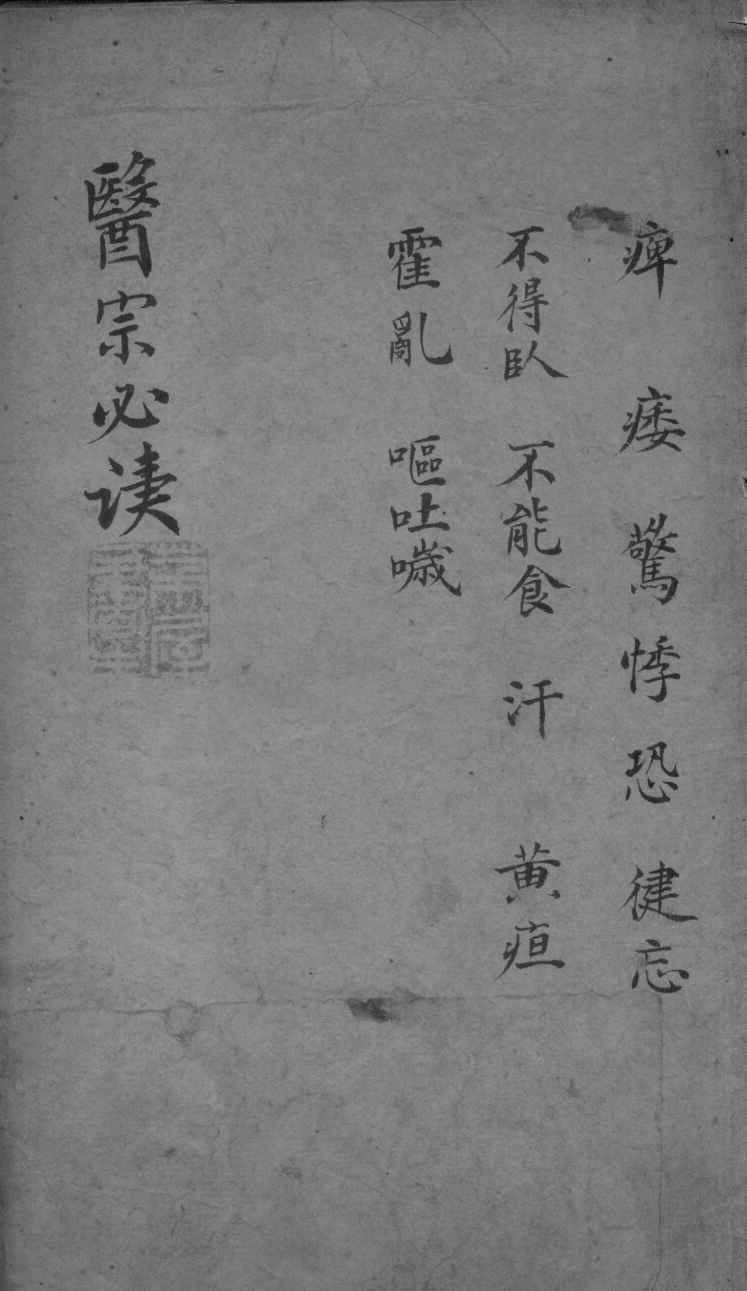 痺 痿 驚悸 恐 健忘
不得臥 不能食 汗 黄疸
霍亂 嘔吐噦
醫宗必读